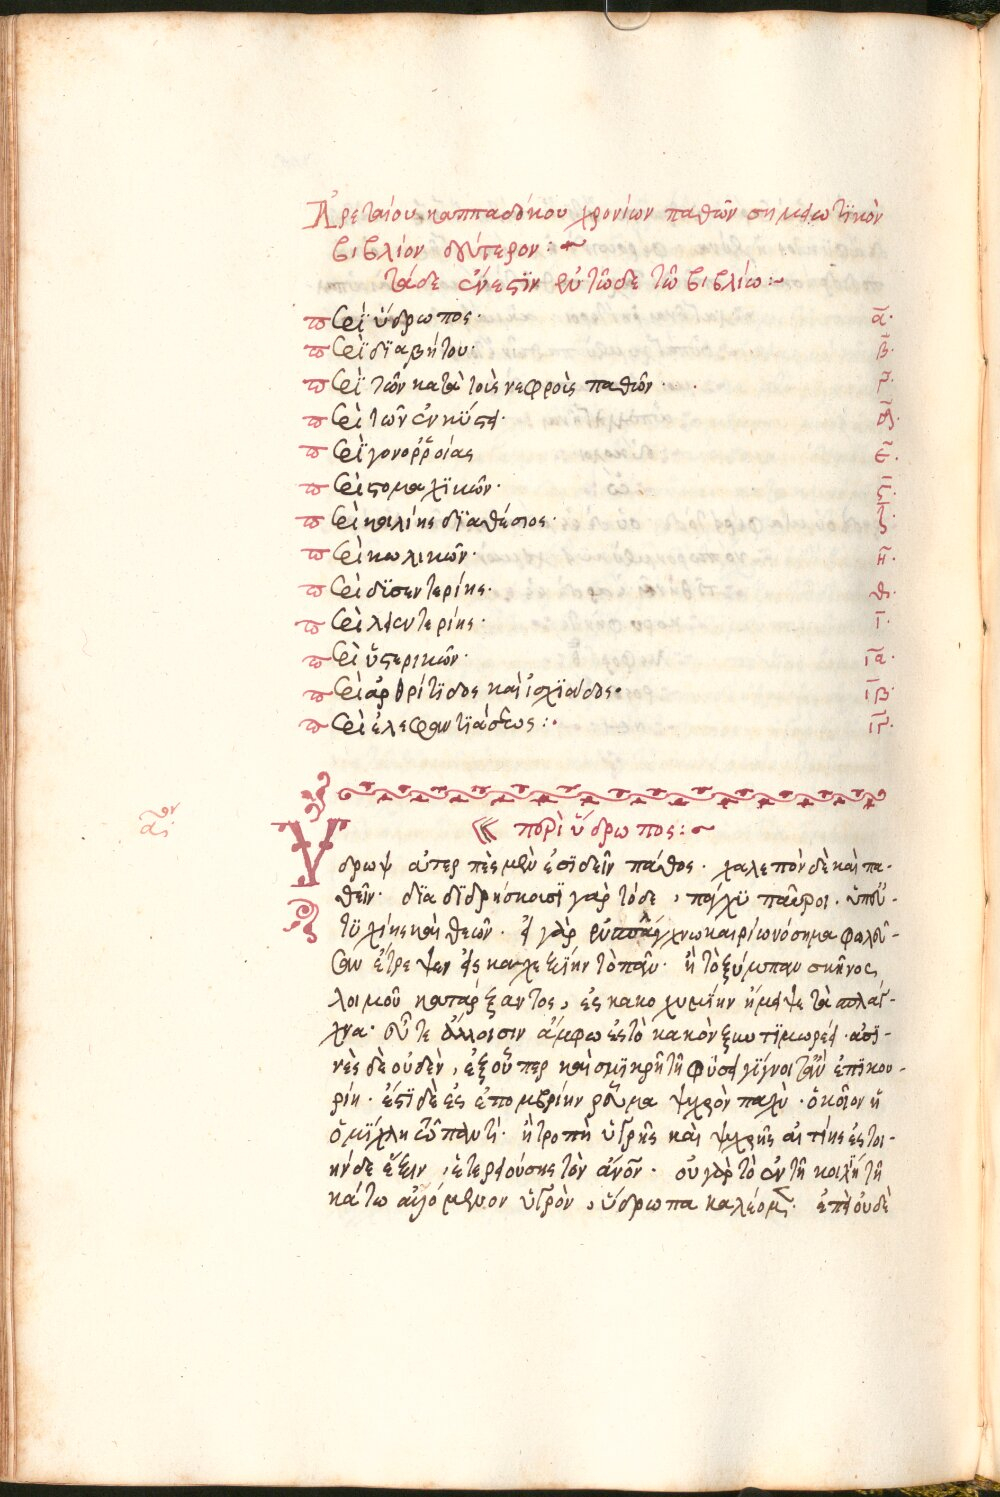 Ἀρεταίου καππαδόκου χρονίων παθῶν σημειωτικὸν
βιβλίον δεύτερον :~
τάδε ἔνεστιν ἐν τῶδε τῶ βιβλίω :~
περὶ ὕδρωπος· α·
περὶ διαβήτου· β·
περὶ τῶν κατὰ τοὶς νεφροὶς παθῶν· γ·
περὶ τῶν ἐν κύστει· δ·
περὶ γονορροίας ε·
περὶ στομαχικῶν· ς·
περὶ κοιλίης διαθέσιος· ζ·
περὶ κωλικῶν· η·
περὶ δισεντερίης· θ·
περὶ λειεντερίης· ι·
περὶ ὑστερικῶν· ια·
περὶ ἀρθρίτιδος καὶ ἰσχϊάδος· ιβ·
περὶ ἐλεφαντιάσεως :· ιγ·
περὶ ὕδρωπος :~
Υδρωψ ἀτερπὲς μὲν ἐσιδεῖν πάθος· χαλεπὸν δὲ καὶ πα-
θεῖν· διαδιδρήσκουσι γὰρ τόδε, πάγχυ παῦροι·
τυχίης καὶ θεῶν· ἢ γὰρ καιρίω νόσημα φωλεῦ-
σαν ἔτρεψεν ἐς καχεξίην τὸ πᾶν· ἢ τὸ ξύμπαν σκῆνος
λοιμοῦ κατάρξαντος, ἐς κακοχυμίην ἤμειψε τὰ σπλάγ-
χνα· εὖτε ἀλλοισιν ἄμφω ἐς τὸ κακὸν ξυντιμωρέει· ἀσι-
νὲς δὲ οὐδὲν, ἐξ οὗπερ καὶ σμικρὴ τῆ φύσει γίγνοιτ' ἂν ἐπικου-
ρίη· ἔστι δὲ ἐς ἐπομβρίην ῥεῦμα ψυχρὸν παχὺ· ὁκοῖον ἢ
ὁμίχλη τῶ παντί· ἢ τροπὴ ὑγρῆς καὶ ψυχρῆς αἰτίης ἐς τοι-
ήνδε ἕξιν, ἑτερειούσης τὸν ἄνον· οὐ γὰρ τὸ ἐν τῆ κοιλίη τῆ
κάτω αἰγόμενον ὑγρὸν, ὕδρωπα καλέομεν· ἐπεὶ οὐδὲ